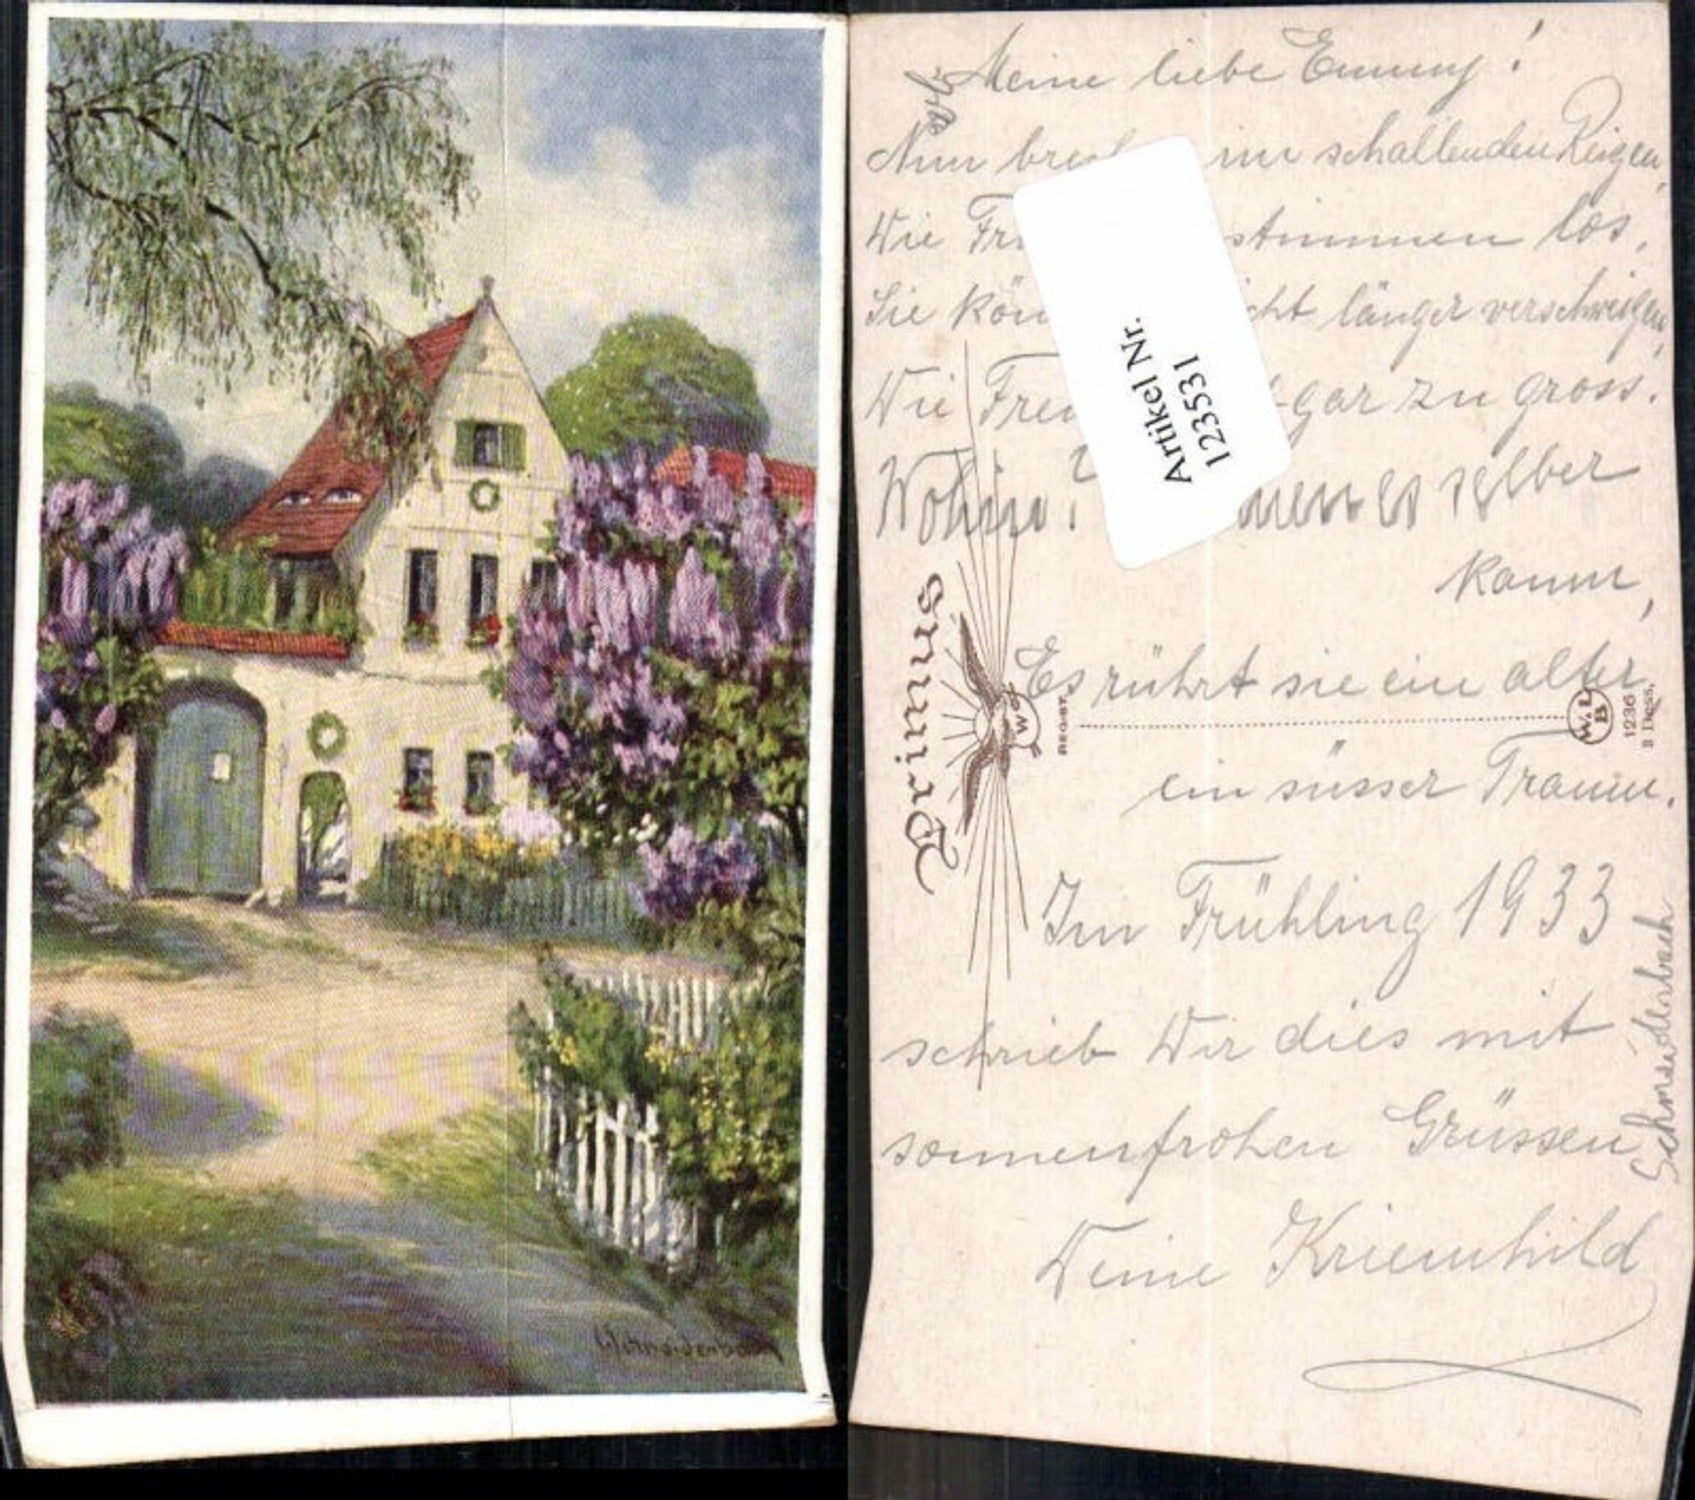 Schneidenbach
Meine liebe Emmy!
Nun im schallenden Reigen,
Wie stimmen los,
Sie länger verschweigen,
Wie gar zu gross.
Wohin? es selber
kaum,
Es rührt sie ein alter,
ein süsser Traum.
Im Frühling 1933
schrieb Wir dies mit
sonnenfrohen Grüssen
Deine Kriemhild
Artikel Nr.
123531
Primus
W
REG. ST.
W.L
B
1236
Schneidenbach